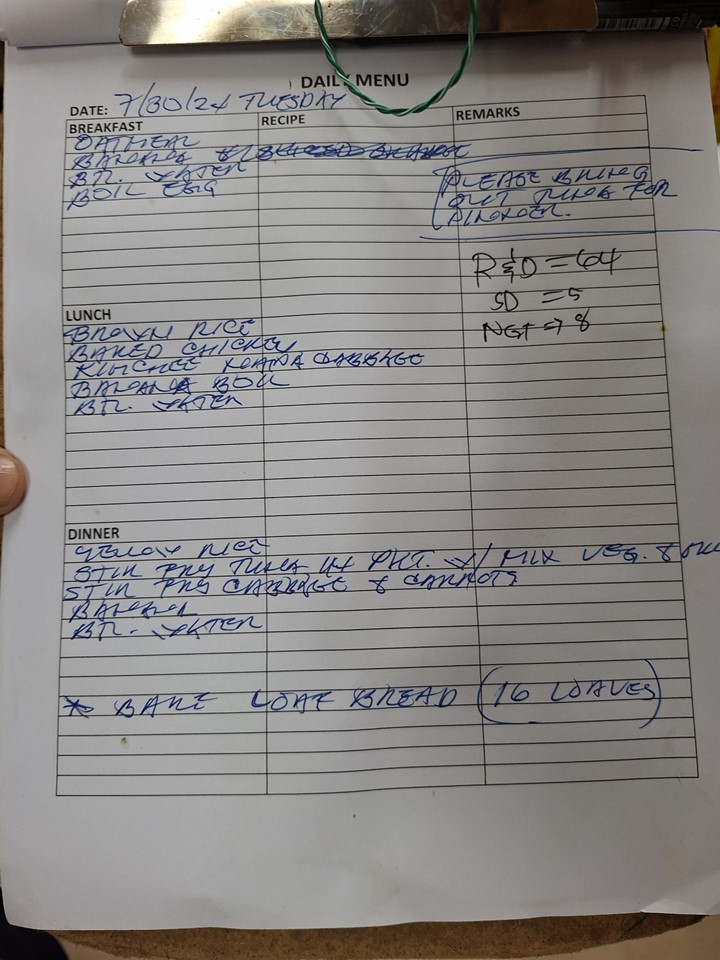 DAILY MENU
DATE: 7/30/24 TUESDAY
BREAKFAST RECIPE REMARKS
OATMEAL
BANANA
BTL. WATER
BOIL EGG
PLEASE BRING
OUT TUNA FOR
DINNER.
R&D = 64
SD = 5
NGT => 8
LUNCH
BROWN RICE
BAKED CHICKEN
KIMCHEE NAPA CABBAGE
BANANA BOIL
BTL. WATER
DINNER
YELLOW RICE
STIR FRY TUNA W/ MIX VEG. &
STIR FRY CABBAGE & CARROTS
BANANA
BTL. WATER
* BAKE LOAF BREAD (16 LOAVES)